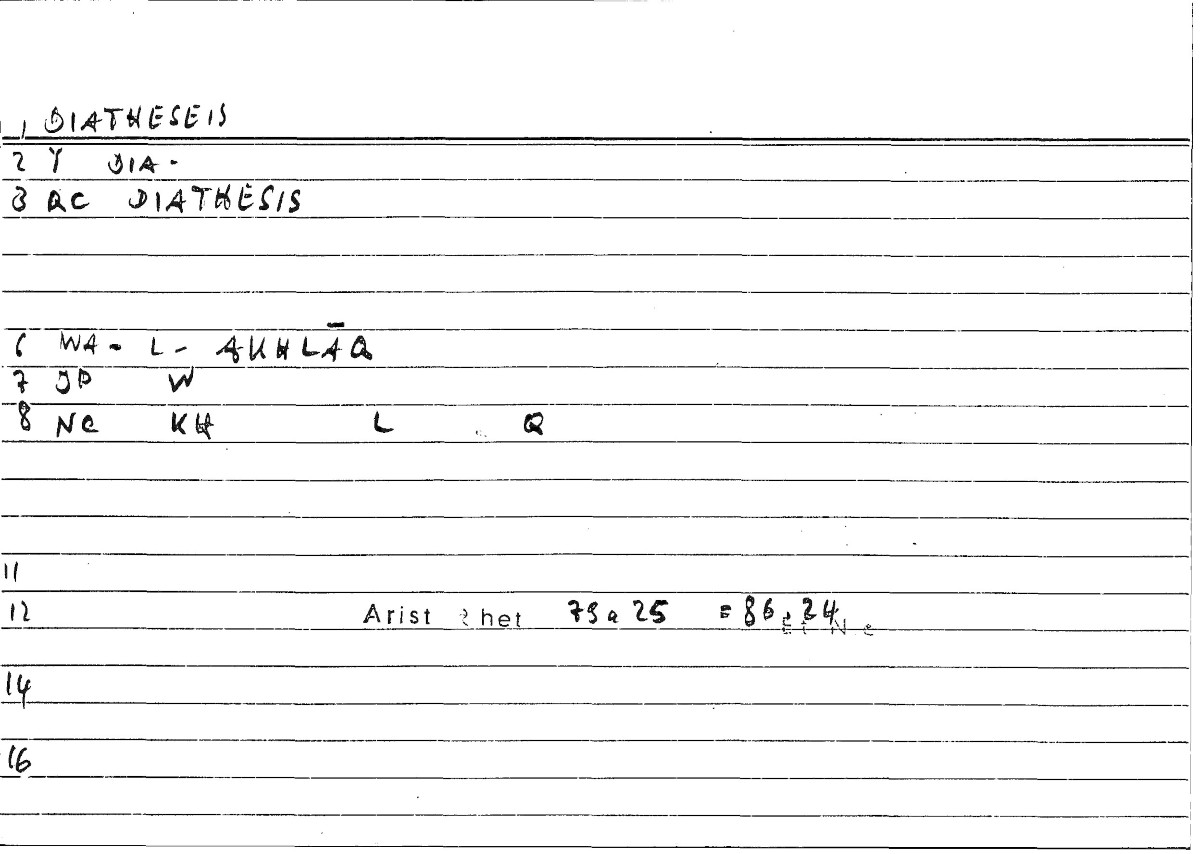 1 DIATHESEIS
2 Y DIA-
3 QC DIATHESIS
6 WA- L- AKHLĀQ
7 JP W
8 NC KH L Q
11
12 Arist Rhet 79a25 = 86,24
14
16